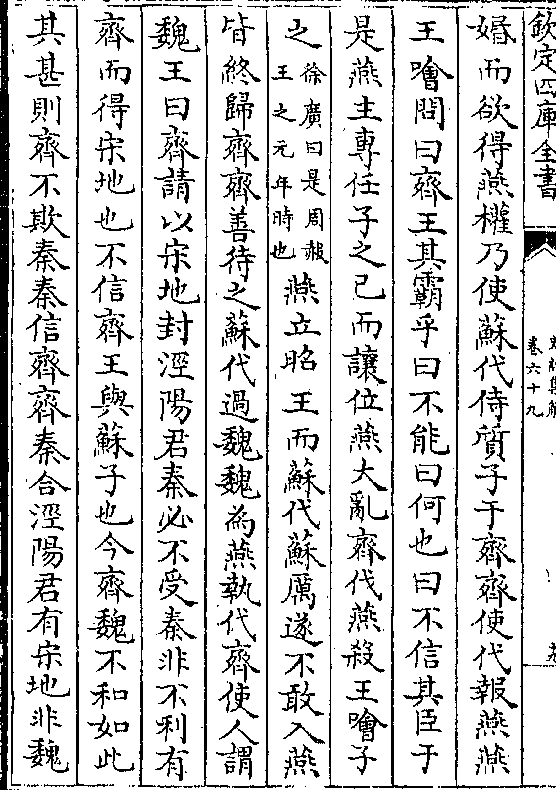 欽定四庫全書
卷六十九
婚而欲得燕權乃使蘇代侍質子于齊齊使代報燕燕
王噲問曰齊王其霸乎曰不能曰何也曰不信其臣于
是燕主專任子之已而讓位燕大亂齊伐燕殺王噲子
之徐廣曰是周赧王之元年時也燕立昭王而蘇代蘇厲遂不敢入燕
皆終歸齊齊善待之蘇代過魏魏為燕執代齊使人謂
魏王曰齊請以宋地封涇陽君秦必不受秦非不利有
齊而得宋地也不信齊王與蘇子也今齊魏不和如此
其甚則齊不欺秦秦信齊齊秦合涇陽君有宋地非魏